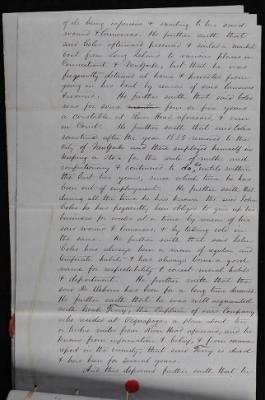 of its being infectious & wanting to his said
wound & lameness. He further saith that
said Coles afterward procured & sailed a market
boat from Long Island to various places in
Connecticut & New York, but that he was
frequently detained at home & prevented from
going in his boat by reason of said lameness
He further saith that said Coles
was for some four or five years
a constable at River Head aforesaid, and
in Court. He further saith that said Coles
sometime after the year 1835 removed to the
City of New York and there employed himself in
keeping a store for the sale of milk and
confectionary & continued to do, until within
the last two years, since which time he has
been out of employment. He further saith that
during all the time he has known the said John
Coles he has frequently been obliged to give up his
business for weeks at a time by reason of his
said wound & lameness, & by taking cold in
the same. He further saith that said Coles
has always been a man of regular and
temperate habits & has always borne a good
name for respectability & correct moral habits
& deportment. He further saith that the
said Dr. Osborn has been for a long time deceased.
He further saith that he was well acquainted
with Noah Terry, the Captain of said Company
who resided at Aquagoque, a place about ten
or twelve miles from River Head aforesaid, and he
knows from information & belief, & from common
report in the vicinity, that said Terry is dead
& has been for several years.
And this deponent further saith that he